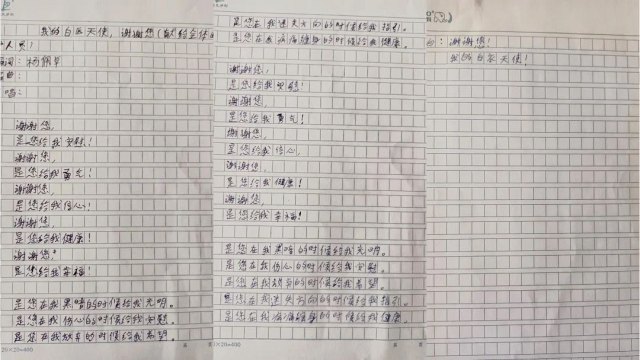 我的白衣天使，谢谢您（献给全体
人员）
词：杨佩草
曲：
唱：
谢谢您，
是您给我安慰！
谢谢您，
是您给我勇气！
谢谢您，
是您给我信心！
谢谢您，
是您给我健康！
谢谢您，
是您给我幸福！
是您在我黑暗的时候给我光明。
是您在我伤心的时候给我安慰。
是您在我缺乏的时候给我希望。
20×20=400
是您在我迷失方向的时候给我指引。
是您在我病痛缠身的时候给我健康。
谢谢您，
是您给我安慰！
谢谢您，
是您给我勇气！
谢谢您，
是您给我信心，
谢谢您，
是您给我健康！
谢谢您，
是您给我幸福！
是您在我黑暗的时候给我光明。
是您在我伤心的时候给我安慰。
是您在我缺乏的时候给我希望。
是您在我迷失方向的时候给我指引。
是您在我病痛缠身的时候给我健康。
20×20=400
白：谢谢您！
我的白衣天使！